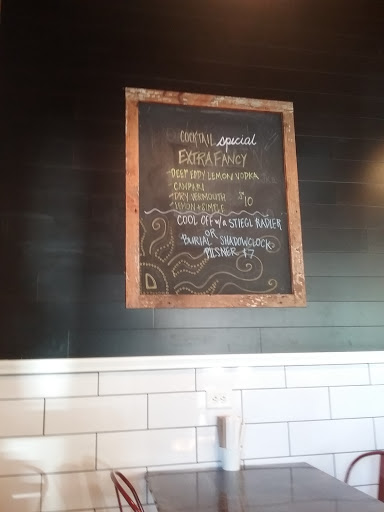 COCKTAIL special
EXTRA FANCY
-DEEP EDDY LEMON VODKA
-CAMPARI
-DRY VERMOUTH $10
-LEMON + SIMPLE
COOL OFF w/a STIEGL RADLER
OR
BURIAL SHADOWCLOCK
PILSNER $7